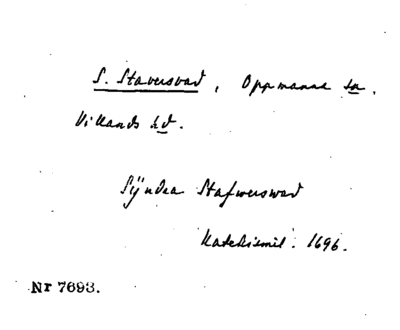 S. Staversvad, Oppmanna sn.
Villands hd.
Sÿndra Stafwerswad
Katekismil. 1696.
Nr 7693.